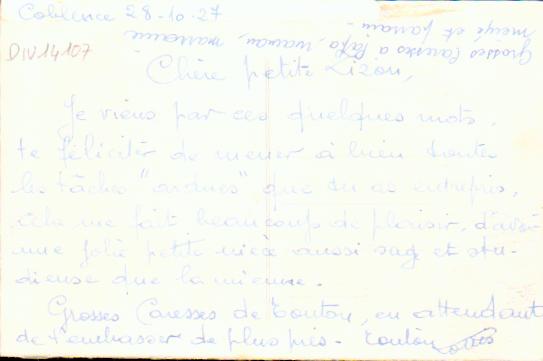 Coblence 28-10-27
Grosses caresses à Papa, maman, marraine,
mémé et parrain -
DIV14107
Chère petite Lizou,
Je viens par ces quelques mots,
te féliciter de mener à bien toutes
les tâches "ardues" que tu as entrepris,
cela me fait beaucoup de plaisir, d'avoir
une jolie petite nièce aussi sage et stu-
dieuse que la mienne.
Grosses Caresses de tonton, en attendant
de t'embrasser de plus près - tonton